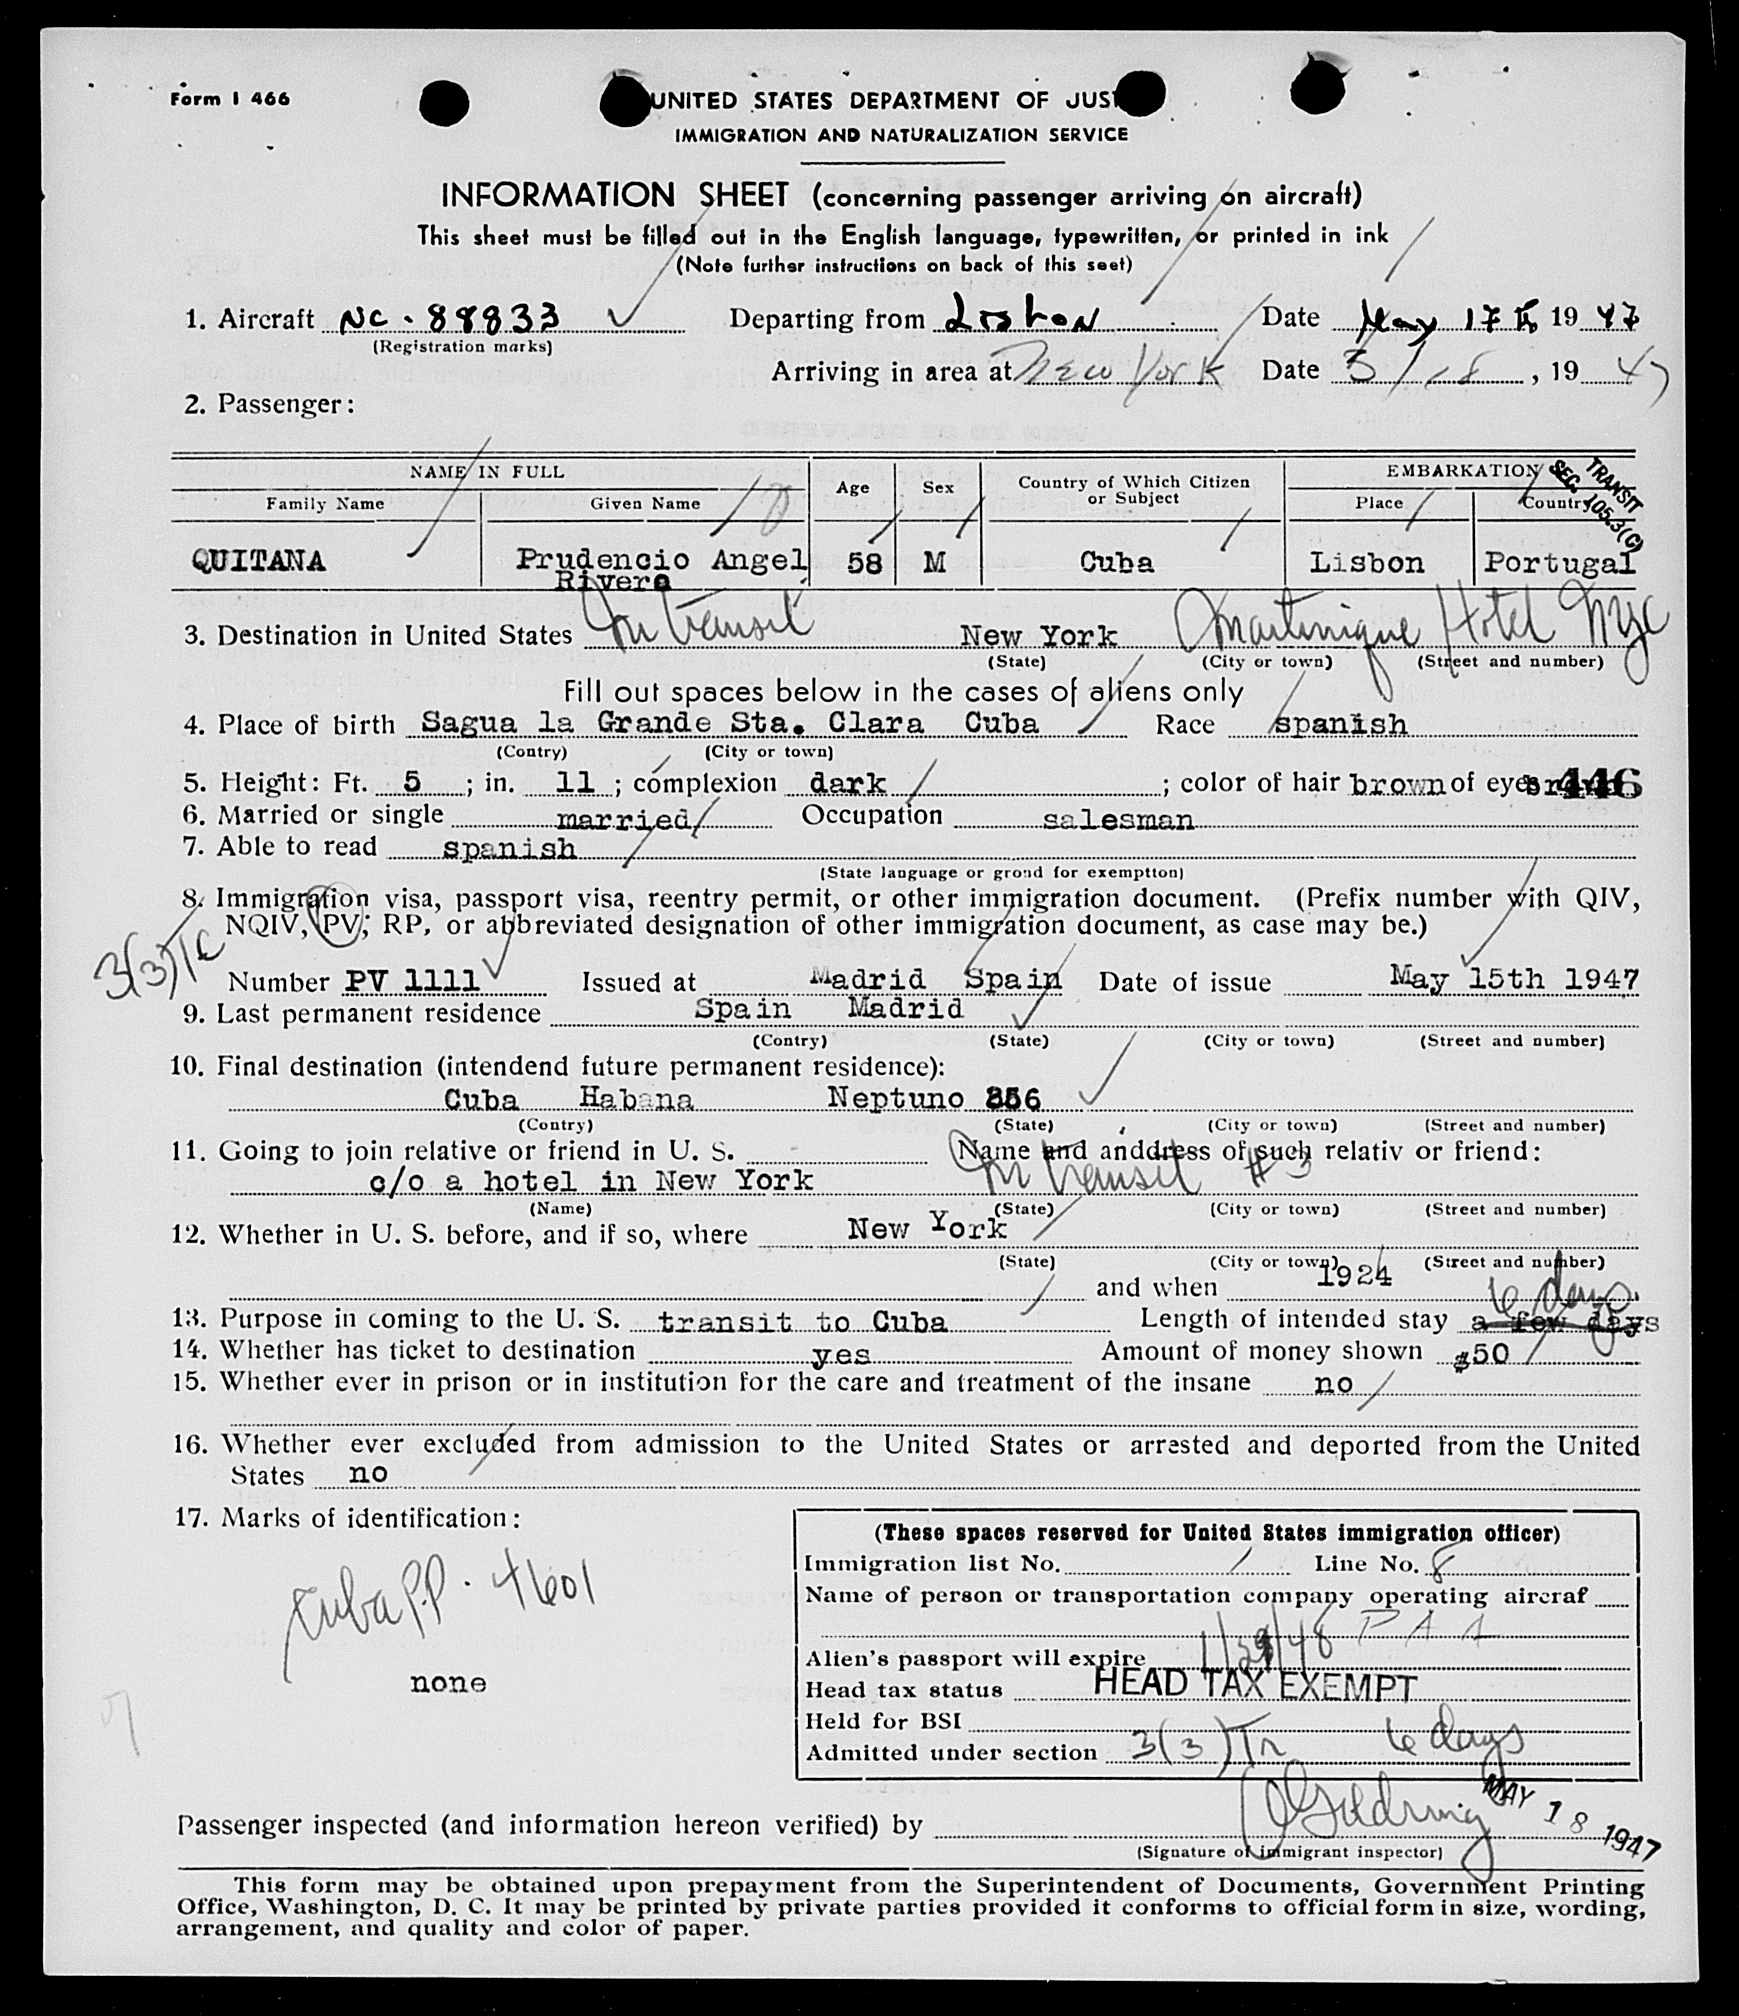 Form I 466
UNITED STATES DEPARTMENT OF JUST
IMMIGRATION AND NATURALIZATION SERVICE
INFORMATION SHEET (concerning passenger arriving on aircraft)
This sheet must be filled out in the English language, typewritten, or printed in ink
(Note further instructions on back of this seet)
1. Aircraft NC - 88833 Departing from Lisbon Date May 17th 1947
(Registration marks)
Arriving in area at New York Date 5/18, 1947
2. Passenger:
NAME IN FULL Age Sex Country of Which Citizen or Subject EMBARKATION
Family Name Given Name Place Country
TRANSIT SEC. 105.3(C)
QUITANA Prudencio Angel Rivera 58 M Cuba Lisbon Portugal
3. Destination in United States In Transit New York Martinique Hotel NYC
(State) (City or town) (Street and number)
Fill out spaces below in the cases of aliens only
4. Place of birth Sagua la Grande Sta. Clara Cuba Race spanish
(Contry) (City or town)
5. Height: Ft. 5 ; in. 11 ; complexion dark ; color of hair brown of eyes brown 446
6. Married or single married Occupation salesman
7. Able to read spanish
(State language or ground for exemptton)
8. Immigration visa, passport visa, reentry permit, or other immigration document. (Prefix number with QIV,
NQIV, PV; RP, or abbreviated designation of other immigration document, as case may be.)
3(3)
Number PV 1111 Issued at Madrid Spain Date of issue May 15th 1947
9. Last permanent residence Spain Madrid
(Contry) (State) (City or town) (Street and number)
10. Final destination (intendend future permanent residence):
Cuba Habana Neptuno 356
(Contry) (State) (City or town) (Street and number)
11. Going to join relative or friend in U. S. Name and anddress of such relativ or friend:
c/o a hotel in New York In transit #3
(Name) (State) (City or town) (Street and number)
12. Whether in U. S. before, and if so, where New York
(State) (City or town) (Street and number)
and when 1924
6 days.
13. Purpose in coming to the U. S. transit to Cuba Length of intended stay a few days
14. Whether has ticket to destination yes Amount of money shown $50
15. Whether ever in prison or in institution for the care and treatment of the insane no
16. Whether ever excluded from admission to the United States or arrested and deported from the United
States no
17. Marks of identification:
Cuba P.P. 4601
none
(These spaces reserved for United States immigration officer)
Immigration list No. 1 Line No. 8
Name of person or transportation company operating aircraf
P A A
Alien's passport will expire 1/29/48
Head tax status HEAD TAX EXEMPT
Held for BSI
Admitted under section 3(3) Tr. 6 days
Passenger inspected (and information hereon verified) by Goldring MAY 18 1947
(Signature of immigrant inspector)
This form may be obtained upon prepayment from the Superintendent of Documents, Government Printing
Office, Washington, D. C. It may be printed by private parties provided it conforms to official form in size, wording,
arrangement, and quality and color of paper.